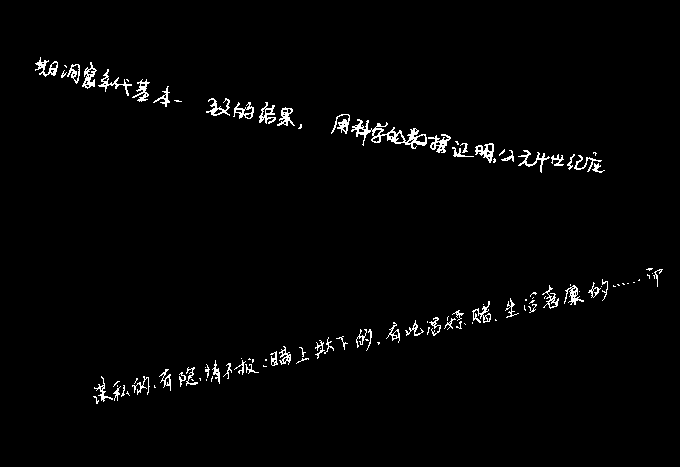 期洞窟年代基本一致的结果，用科学的数据证明,公元4世纪应
谋私的、有隐情不报、瞒上欺下的、有吃喝嫖赌、生活奢糜的……而